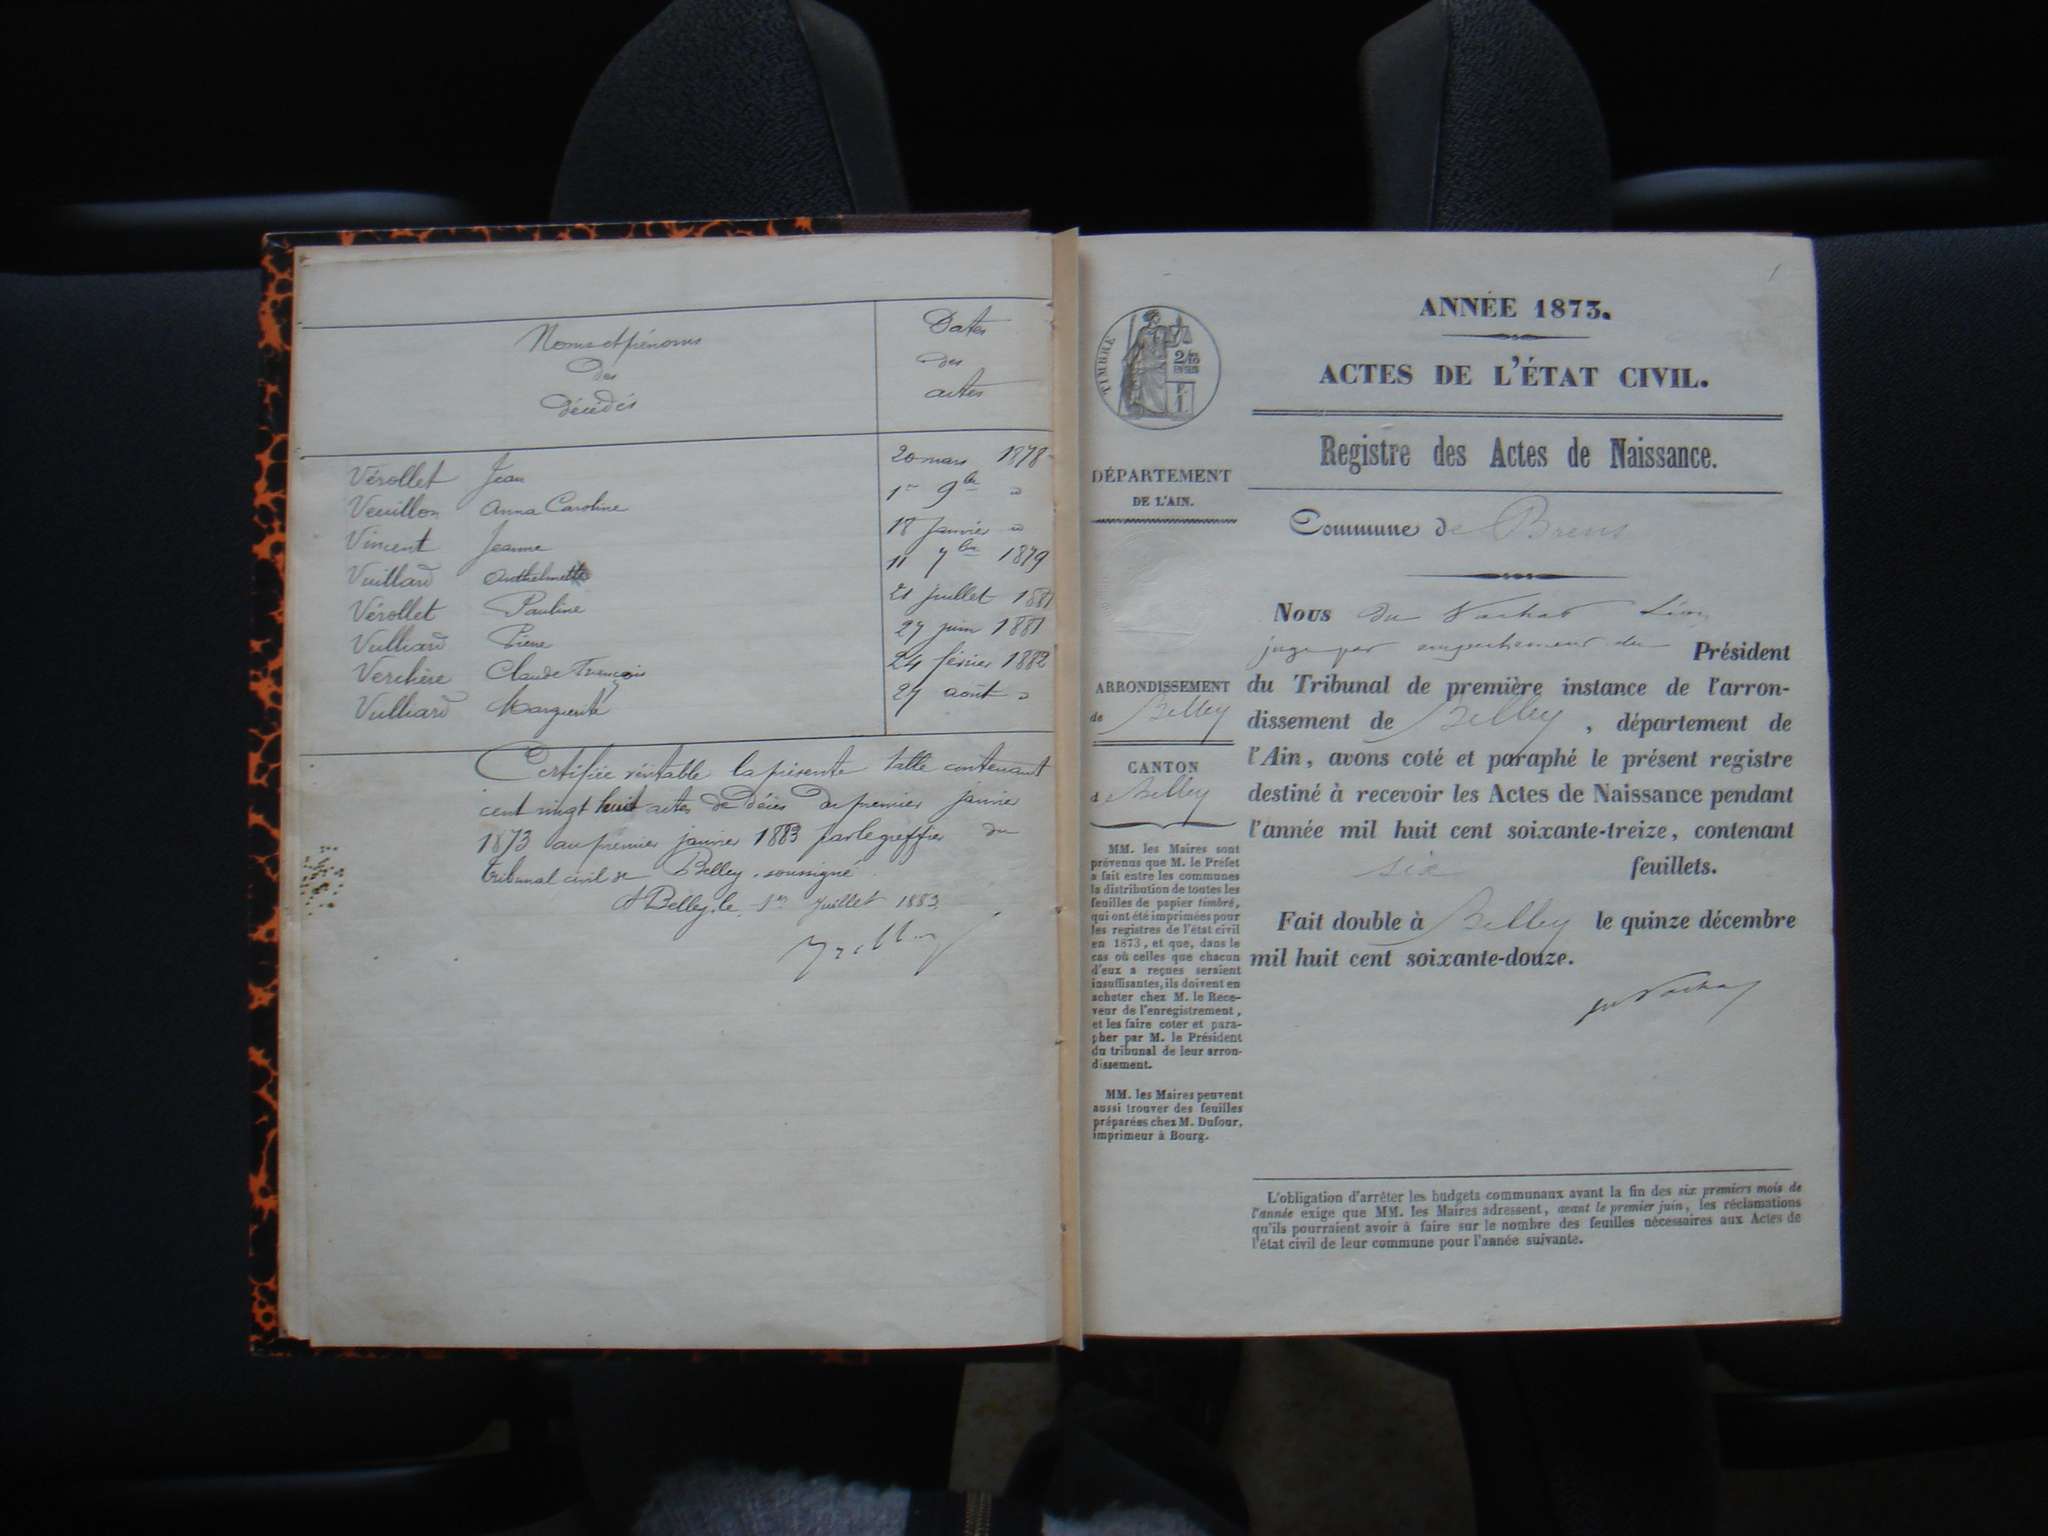 Noms et prénoms
des
décédés
Dates
des
actes
Vérollet Jean 20 mars 1878
Veuillon Anna Caroline 1er 9bre »
Vincent Jeanne 18 Janvier »
Vuillard Anthelmette 11 7bre 1879
Vérollet Pauline 21 juillet 1881
Vulliard Pierre 27 juin 1881
Verchère Claude François 24 février 1882
Vulliard Marguerite 27 août »
Certifiée véritable la présente table contenant
cent vingt huit actes de décès du premier janvier
1873 au premier janvier 1883 par le greffier du
tribunal civil de Belley soussigné.
A Belley, le 1er Juillet 1883.
1
ANNÉE 1873.
ACTES DE L'ÉTAT CIVIL.
Registre des Actes de Naissance.
Commune de Brens
TIMBRE
DÉPARTEMENT
DE L'AIN.
ARRONDISSEMENT
de Belley
CANTON
d Belley
MM. les Maires sont
prévenus que M. le Préfet
a fait entre les communes
la distribution de toutes les
feuilles de papier timbré,
qui ont été imprimées pour
les registres de l'état civil
en 1873, et que, dans le
cas où celles que chacun
d'eux a reçues seraient
insuffisantes, ils doivent en
acheter chez M. le Rece-
veur de l'enregistrement,
et les faire coter et para-
pher par M. le Président
du tribunal de leur arron-
dissement.
MM. les Maires peuvent
aussi trouver des feuilles
préparées chez M. Dufour,
imprimeur à Bourg.
Nous du Vachat Léon
juge par empêchement du Président
du Tribunal de première instance de l'arron-
dissement de Belley, département de
l'Ain, avons coté et paraphé le présent registre
destiné à recevoir les Actes de Naissance pendant
l'année mil huit cent soixante-treize, contenant
six feuillets.
Fait double à Belley le quinze décembre
mil huit cent soixante-douze.
du Vachat
L'obligation d'arrêter les budgets communaux avant la fin des six premiers mois de
l'année exige que MM. les Maires adressent, avant le premier juin, les réclamations
qu'ils pourraient avoir à faire sur le nombre des feuilles nécessaires aux Actes de
l'état civil de leur commune pour l'année suivante.